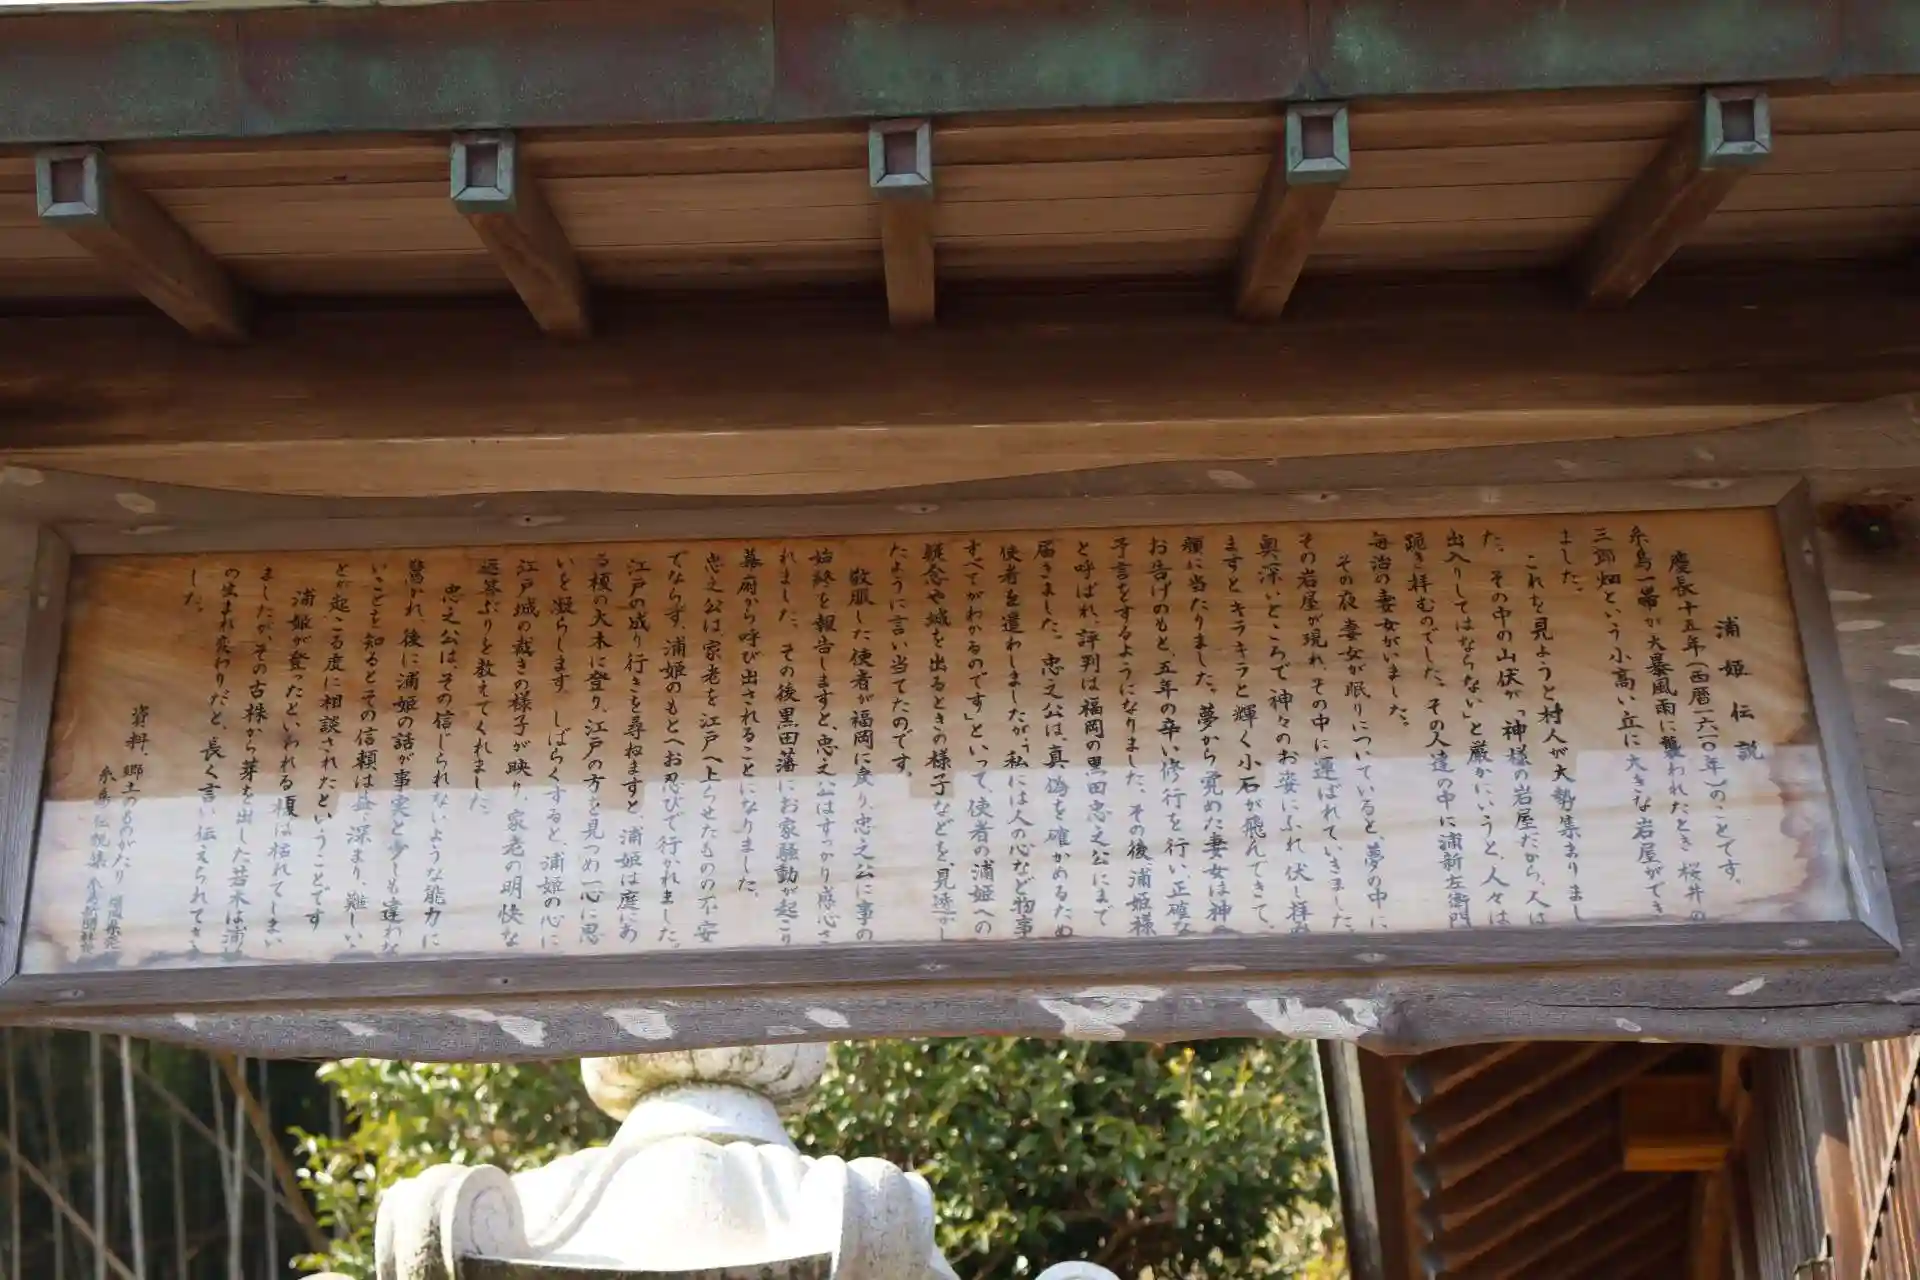 浦姫伝説
慶長十五年(西暦一六一〇年)のことです。
糸島一帯が大暴風雨に襲われたとき 桜井の
三郎畑という小高い丘に大きな岩屋ができ
ました。
これを見ようと村人が大勢集まりまし
た。その中の山伏が「神様の岩屋だから、人は
出入りしてはならない」と厳かにいうと、人々は
跪き拝むのでした。その人達の中に浦新左衛門
毎治の妻女がいました。
その夜 妻女が眠りについていると、夢の中に
その岩屋が現れ、その中に運ばれていきました。
奥深いところで神々のお姿にふれ 伏し拝み
ますとキラキラと輝く小石が飛んできて、
額に当たりました。夢から覚めた妻女は神の
お告げのもと、五年の辛い修行を行い、正確な
予言をするようになりました。その後、浦姫様
と呼ばれ、評判は福岡の黒田忠之公にまで
届きました。忠之公は、真偽を確かめるため
使者を遣わしましたが、「私には人の心など物事
すべてがわかるのです」といって、使者の浦姫への
疑念や城を出るときの様子などを、見透かし
たように言い当てたのです。
敬服した使者が福岡に戻り、忠之公に事の
始終を報告しますと、忠之公はすっかり感心さ
れました。その後黒田藩にお家騒動が起こり
幕府から呼び出されることになりました。
忠之公は、家老を江戸へ上らせたものの不安
でならず、浦姫のもとへお忍びで行かれました。
江戸の成り行きを尋ねますと、浦姫は庭にあ
る榎の大木に登り、江戸の方を見つめ一心に思
いを凝らします。しばらくすると、浦姫の心に
江戸城の裁きの様子が映り、家老の明快な
返答ぶりを教えてくれました
忠之公は、その信じられないような能力に
驚かれ、後に浦姫の話が事実と少しも違わな
いことを知るとその信頼は益々深まり、難しいこ
とが起こる度に相談されたということです
浦姫が登ったといわれる榎は枯れてしまい
ましたが、その古株から芽を出した若木は浦姫
の生まれ変わりだと、長く言い伝えられてきま
した。
資料、郷土のものがたり 福岡県発行
糸島伝説集 糸島新聞社発行